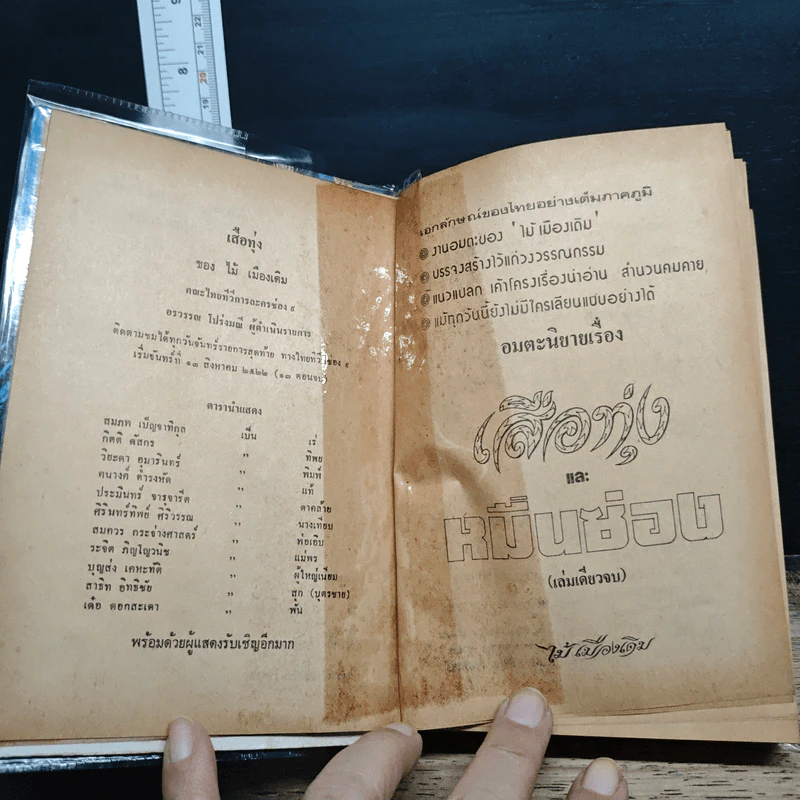 เสือทุ่ง
ของ ไม้ เมืองเดิม
คณะไทยทีวีการละครช่อง ๙
อรวรรณ โปร่งมณี ผู้ดำเนินรายการ
ติดตามชมได้ทุกวันจันทร์รายการสุดท้าย ทางไทยทีวีช่อง ๙
เริ่มจันทร์ที่ ๑๓ สิงหาคม ๒๕๒๒ (๑๓ ตอนจบ)
ดารานำแสดง
สมภพ เบ็ญจาทิกุล เป็น เร่
กิตติ ดัสกร ,, ทิพย
วิยะดา อุมารินทร์ ,, พิมพ์
คนางค์ ดำรงหัด ,, แท้
ประมินทร์ จารุจารีต ,, ตาคล้าย
ศิรินทร์ทิพย์ ศิริวรรณ ,, นวงเทียบ
สมควร กระจ่างศาสตร์ ,, พ่อเอิบ
ระจิต ภิญโญวนิช ,, แม่พร
บุญส่ง เคหะทัต ,, ผู้ใหญ่เนียม
สาธิท อิทธิชัย ,, สุก (บุตรชาย)
เด๋อ ดอกสะเดา ,, พัน
พร้อมด้วยผู้แสดงรับเชิญอีกมาก
เอกลักษณ์ของไทยอย่างเต็มภาคภูมิ
งานอมตะของ 'ไม้ เมืองเดิม'
บรรจงสร้างไว้แก่วงวรรณกรรม
แนวแปลก เค้าโครงเรื่องน่าอ่าน สำนวนคมคาย
แม้ทุกวันนี้ยังไม่มีใครเลียนแบบอย่างได้
อมตะนิยายเรื่อง
เสือทุ่ง
และ
หมื่นซ่อง
(เล่มเดียวจบ)
ไม้ เมืองเดิม
8
22
21
20
19